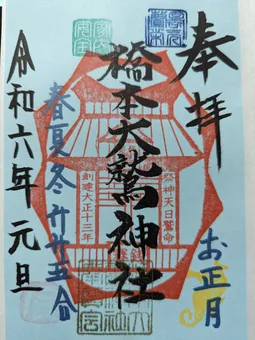 奉拝
橋本大鷲神社
祭神天日鷲命
創建大正十三年
お正月
春夏冬 廾廾五合
令和六年 元旦